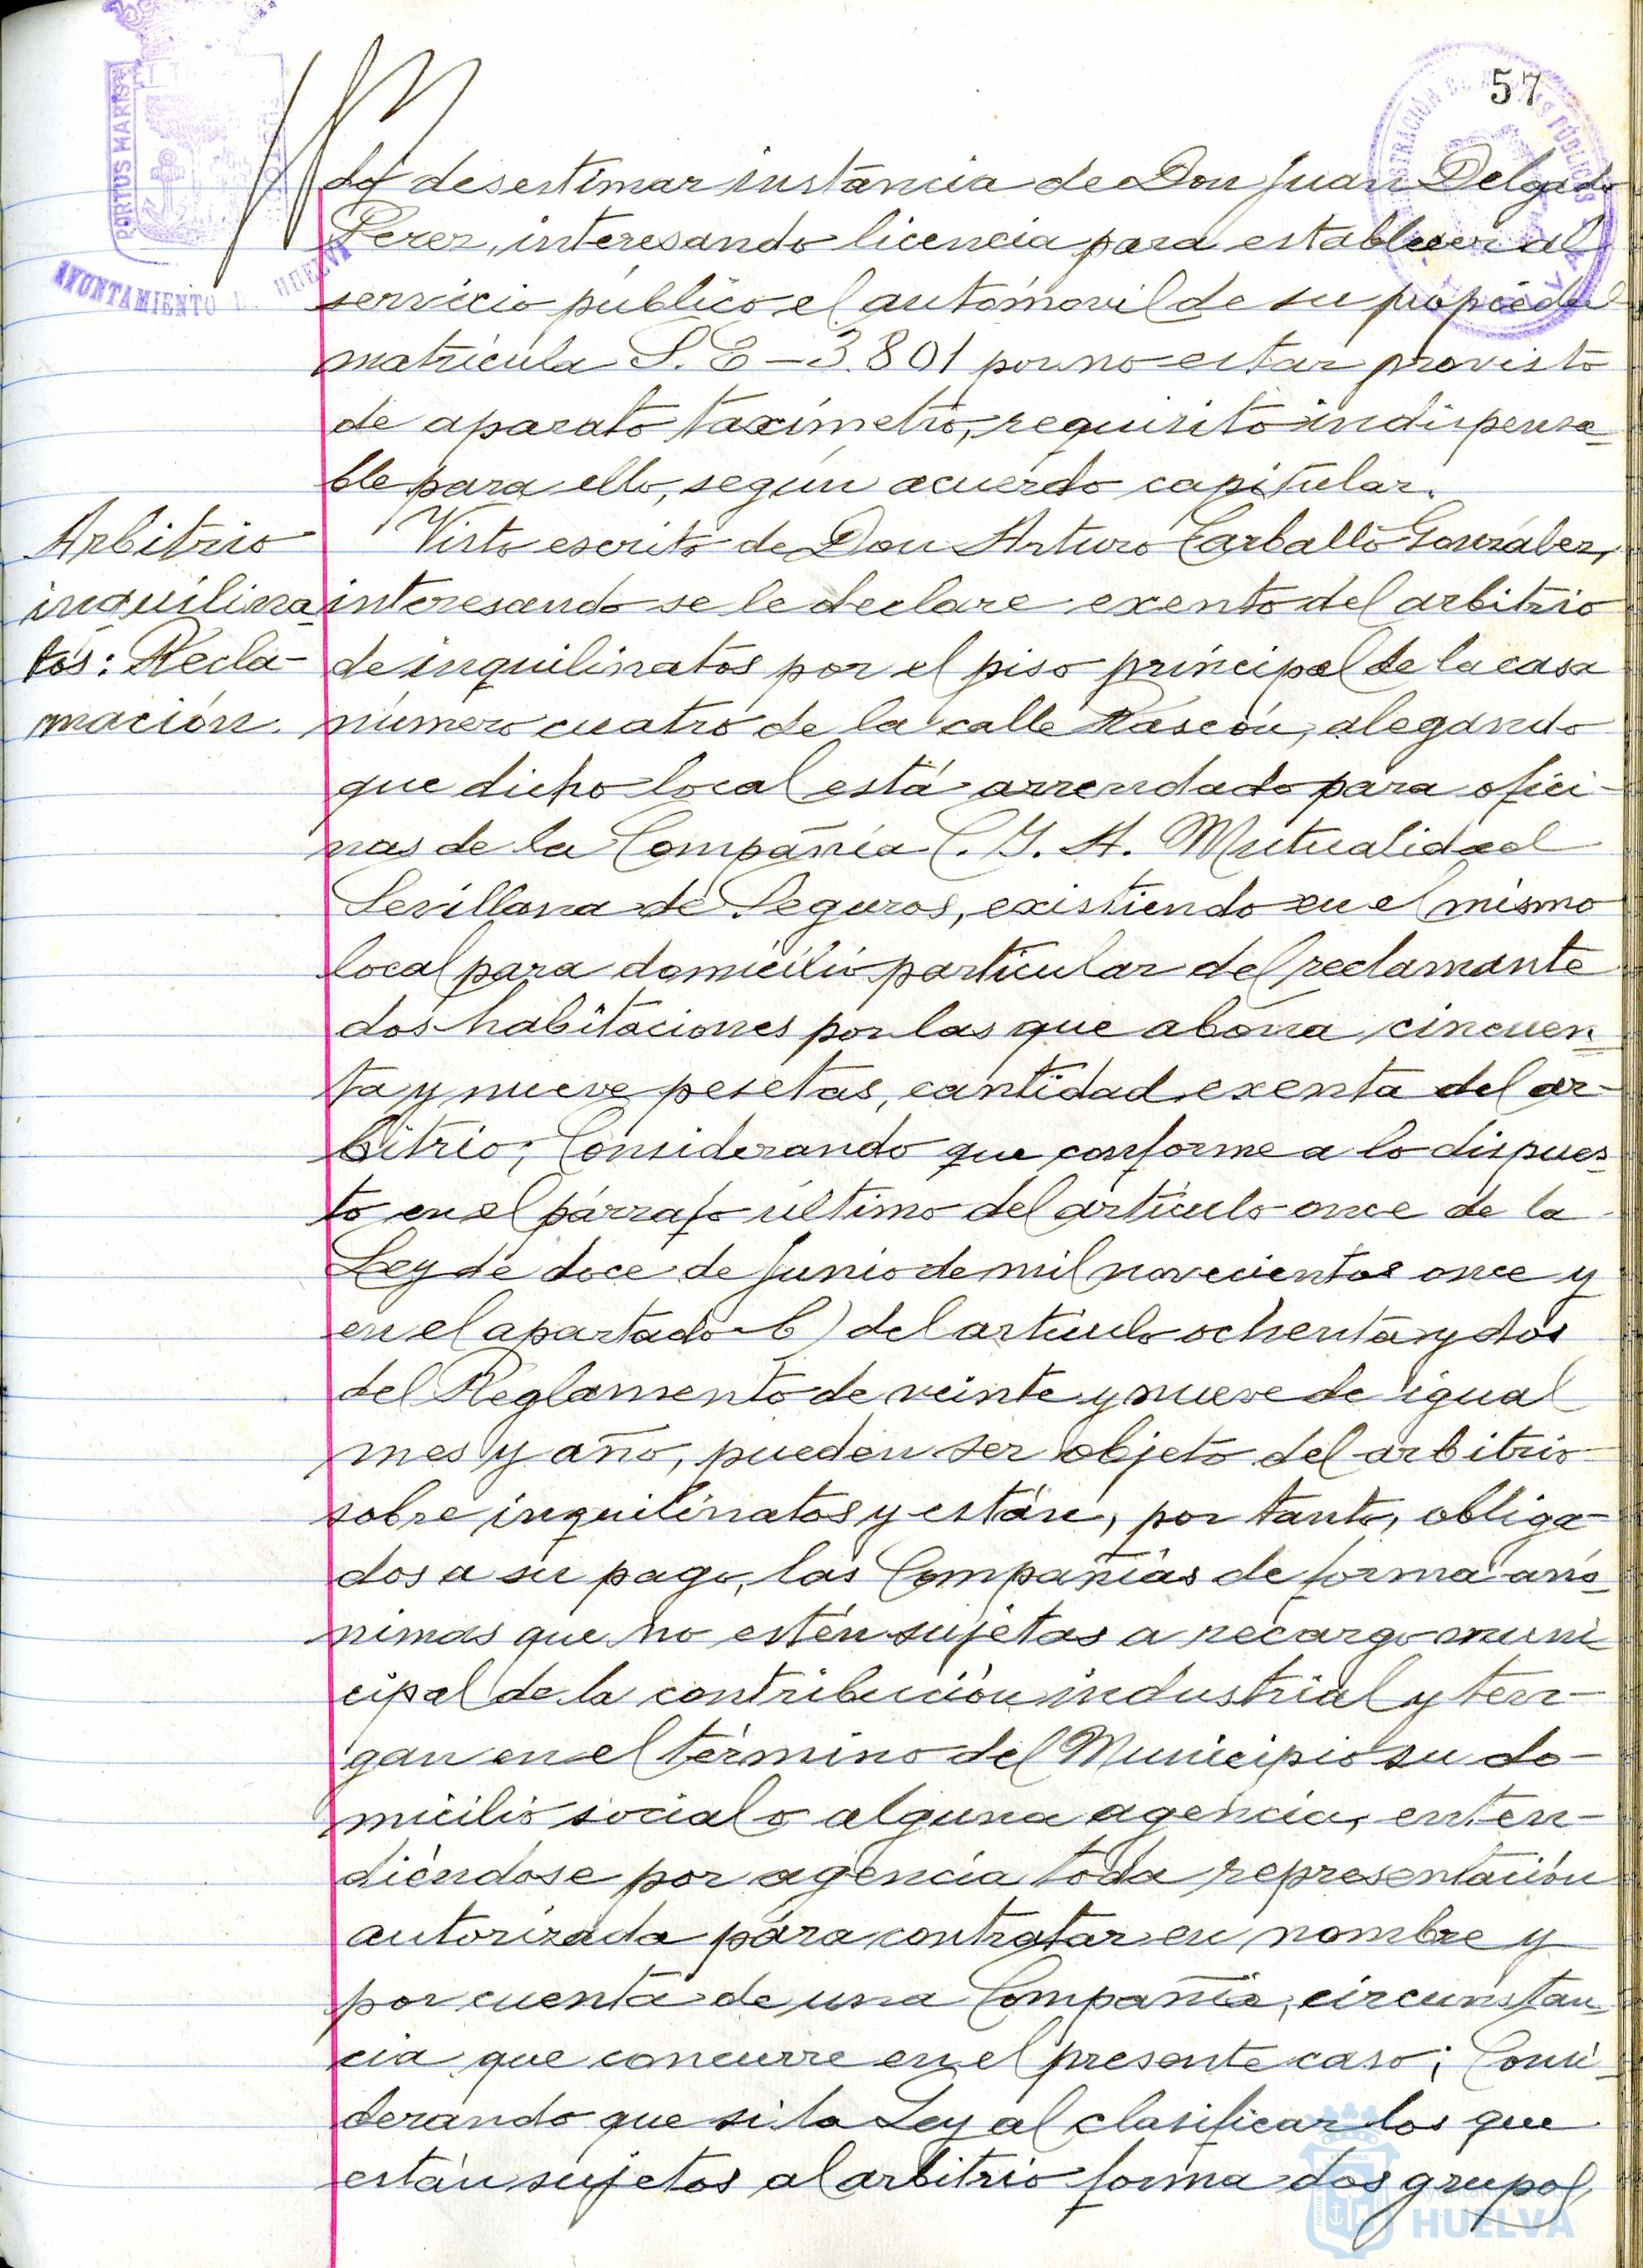 57
PORTUS MARIS
AYUNTAMIENTO D. HUELVA
do desestimar instancia de Don Juan Delgado
Perez, interesando licencia para establecer al
servicio público el automovil de su propiedad
matricula S.E-3.801 por no estar provisto
de aparato taximetro, requisito indispensa-
ble para ello, según acuerdo capitular.
Arbitrio
inquilina-
tos: Recla-
mación.
Visto escrito de Don Arturo Carballo González,
interesando se le declare exento del arbitrio
de inquilinatos por el piso principal de la casa
número cuatro de la calle Rascón, alegando
que dicho local está arrendado para ofici-
nas de la Compañía C. G. A. Mutualidad
Sevillana de Seguros, existiendo en el mismo
local para domicilio particular del reclamante
dos habitaciones por las que abona cincuen-
ta y nueve pesetas, cantidad exenta del ar-
bitrio; Considerando que conforme a lo dispues-
to en el párrafo último del artículo once de la
Ley de doce de Junio de mil novecientos once y
en el apartado b) del artículo ochenta y dos
del Reglamento de veinte y nueve de igual
mes y año, pueden ser objeto del arbitrio
sobre inquilinatos y están, por tanto, obliga-
dos a su pago, las Compañías de forma anó-
nimas que no estén sujetas a recargo muni
cipal de la contribución industrial y ten-
gan en el término del Municipio su do-
micilio social o alguna agencia, enten-
diéndose por agencia toda representación
autorizada para contratar en nombre y
por cuenta de una Compañía, circunstan-
cia que concurre en el presente caso; Consi-
derando que si la Ley al clasificar los que
están sujetos al arbitrio forma dos grupos,
HUELVA